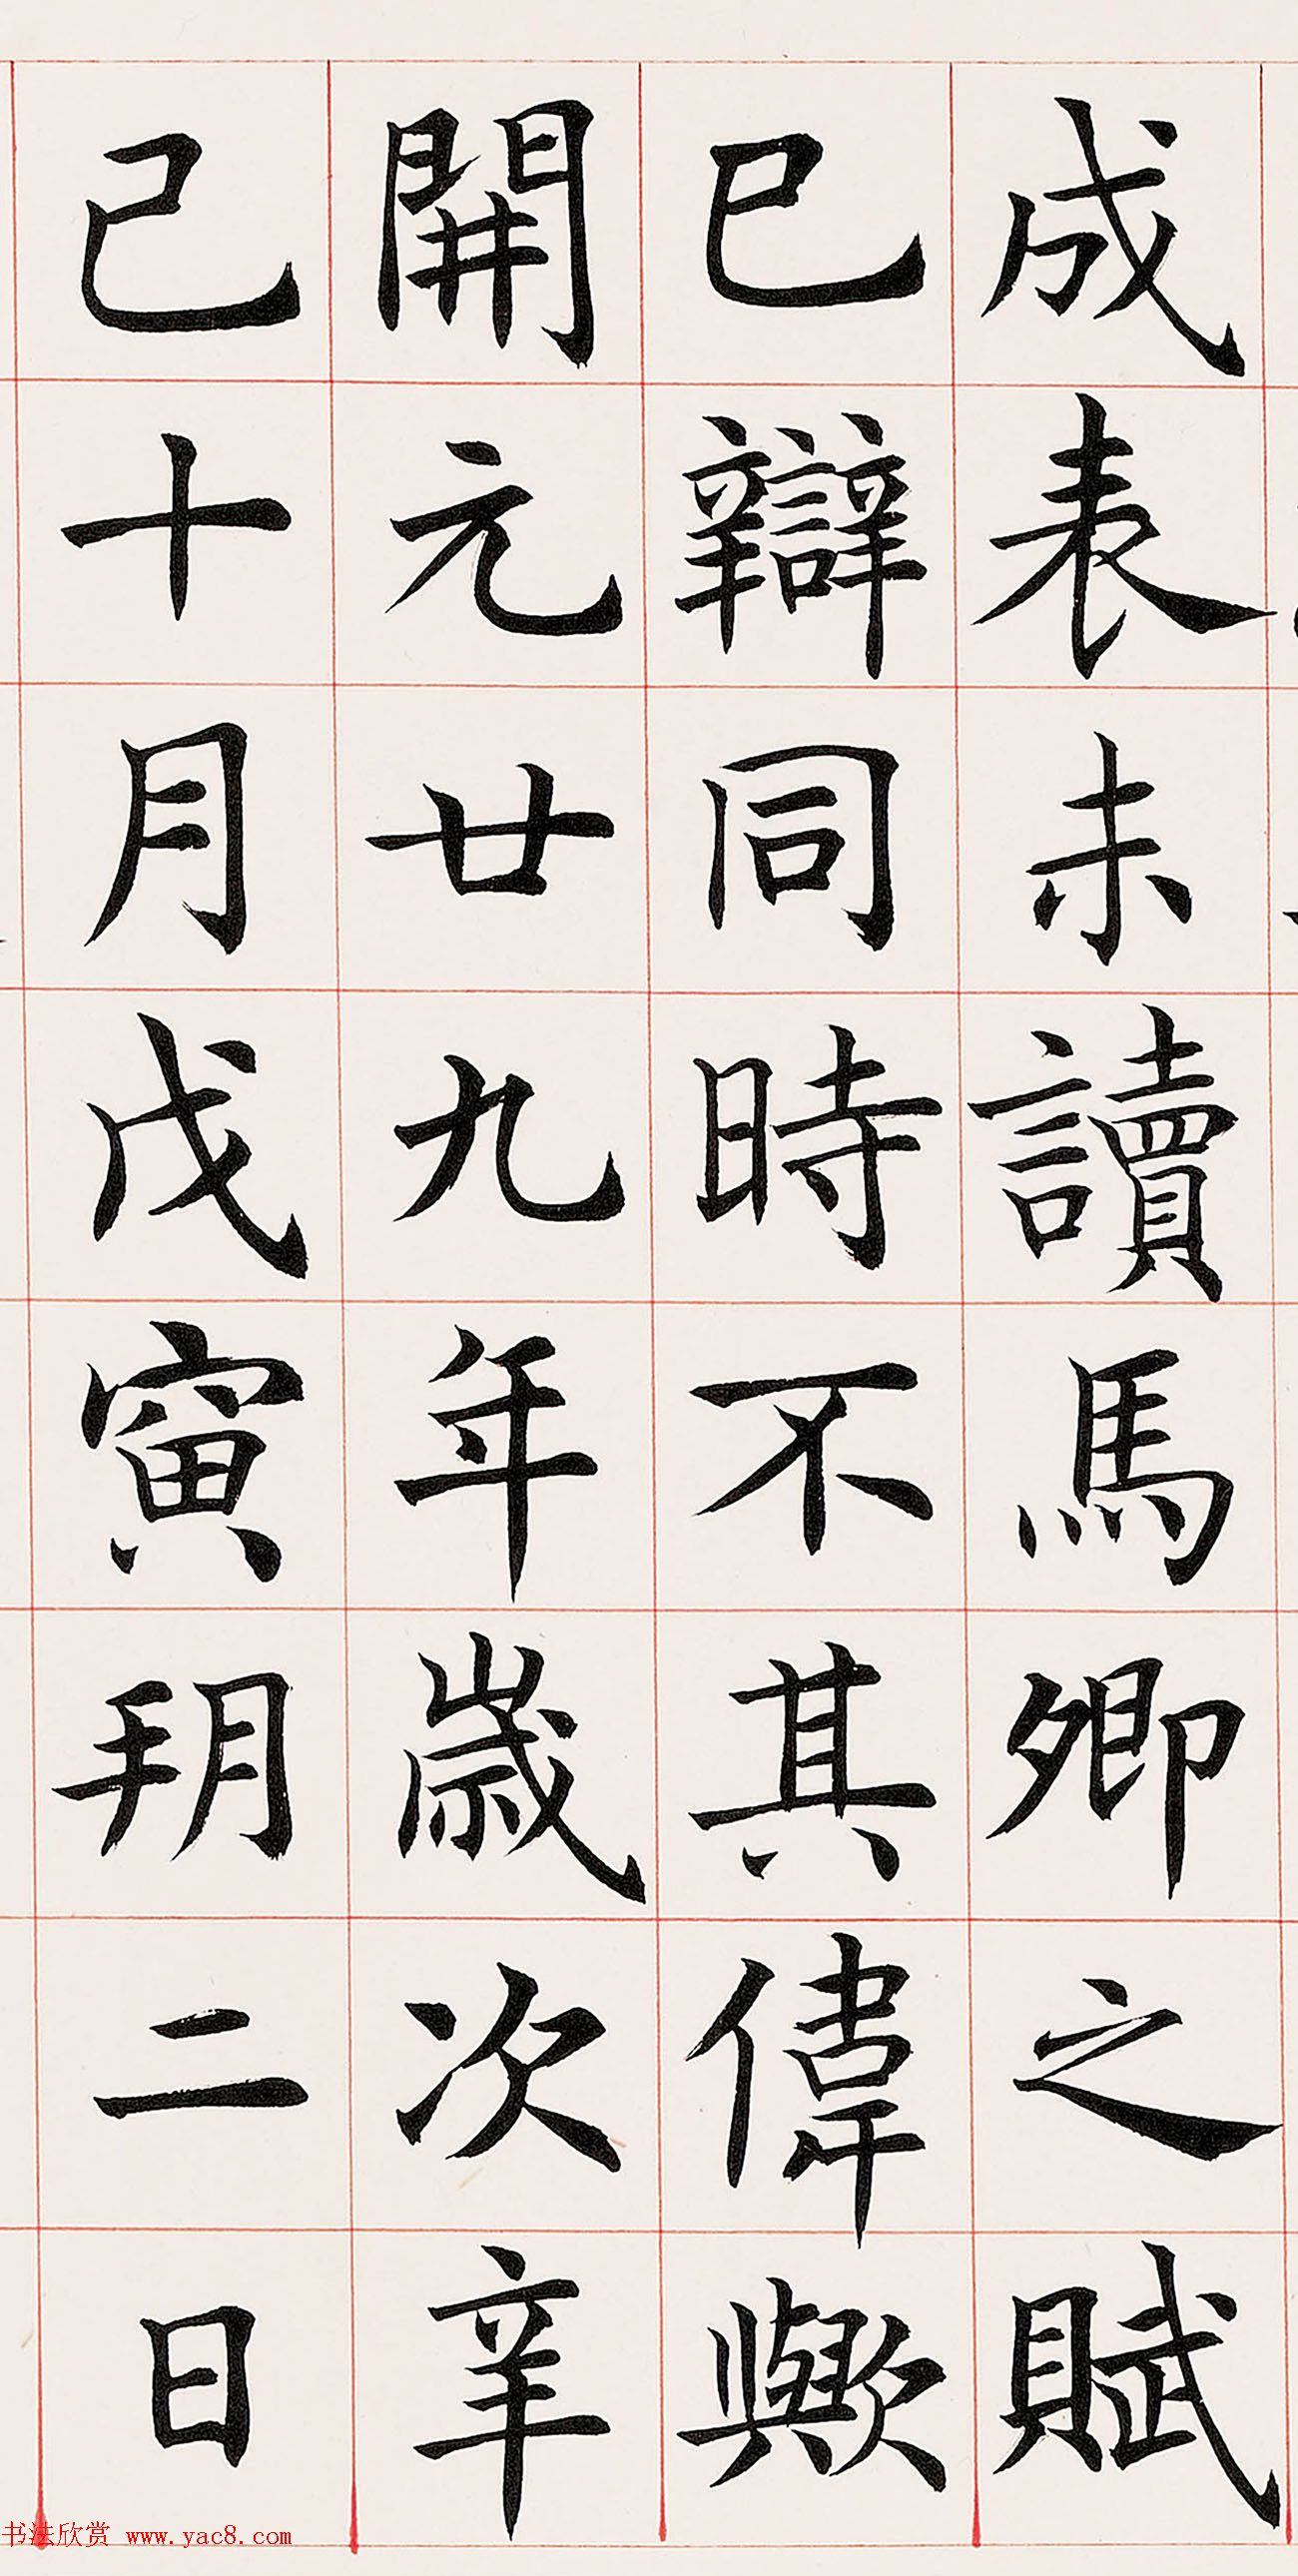 成表未讀馬卿之賦
已辯同時不其偉歟
開元廿九年歲次辛
已十月戊寅朔二日
书法欣赏 www.yac8.com